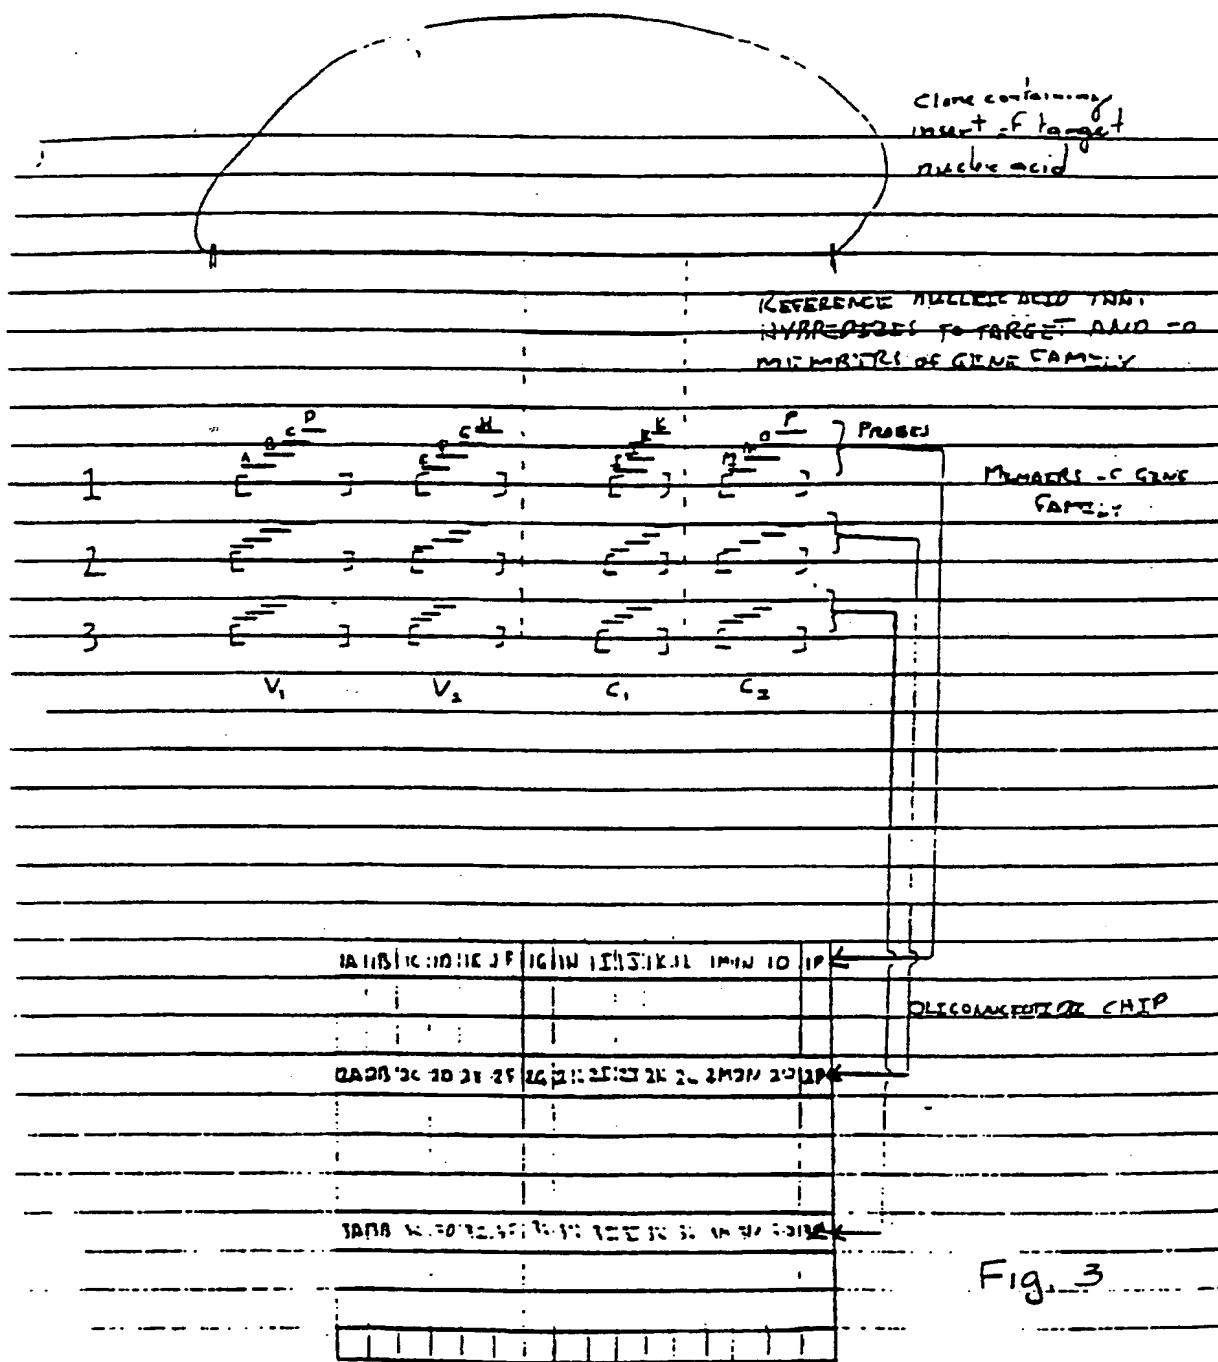 Clone containing
insert of target
nucleic acid
REFERENCE NUCLEIC ACID THAT
HYBRIDIZES TO TARGET AND TO
MEMBERS OF GENE FAMILY
A B C D
E F G H
I J K
M N O P
PROBES
1
MEMBERS OF GENE
FAMILY
2
3
V₁ V₂ C₁ C₂
1A 1B 1C 1D 1E 1F 1G 1H 1I 1J 1K 1L 1M 1N 1O 1P
OLIGONUCLEOTIDE CHIP
2A 2B 2C 2D 2E 2F 2G 2H 2I 2J 2K 2L 2M 2N 2O 2P
3A 3B
Fig. 3